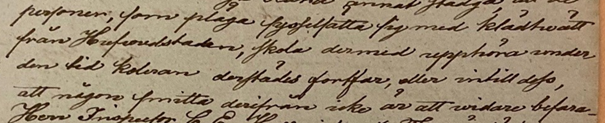 personer, som pläga sysselsätta sig med klädtvätt
från Hufvudstaden, skola dermed upphöra under
den tid koleran derstädes fortfar, eller intill dess,
att någon smitta derifrån icke är att vidare befara.
Herr Inspector